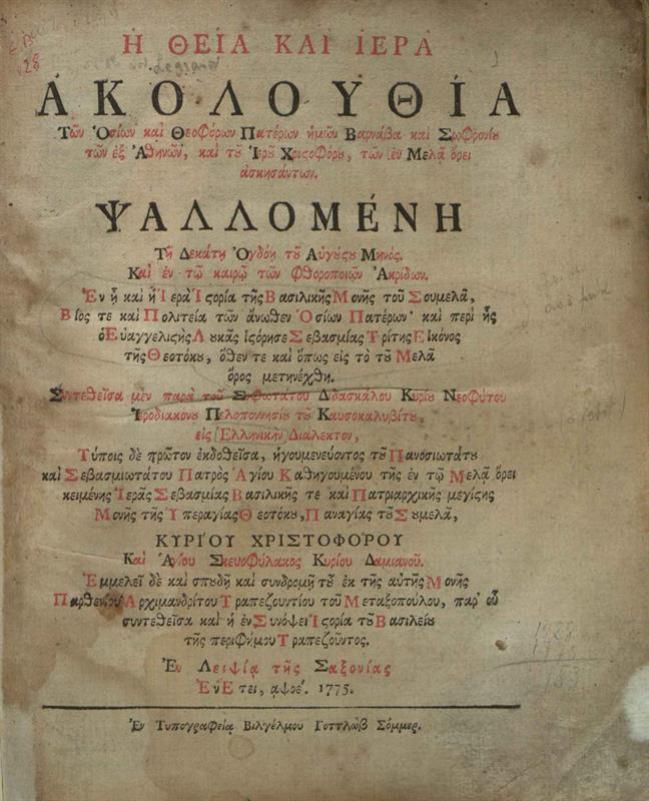 Η ΘΕΙΑ ΚΑΙ ΙΕΡΑ
ΑΚΟΛΟΥΘΙΑ
Τῶν Ὁσίων καὶ Θεοφόρων Πατέρων ἡμῶν Βαρνάβα καὶ Σωφρονίȣ
τῶν ἐξ Ἀθηνῶν, καὶ τȣ͂ Ἱερȣ͂ Χριϛοφόρȣ, τῶν ἐν Μελᾷ ὄρει
ἀσκησάντων.
ΨΑΛΛΟΜΈΝΗ
Τῇ Δεκάτῃ Ὀγδόῃ τȣ͂ Αὐγȣ́ϛȣ Μηνός.
Καὶ ἐν τῷ καιρῷ τῶν φθοροποιῶν Ἀκρίδων.
Ἐν ᾗ καὶ ἡ Ἱερὰ Ἱϛορία τῆς Βασιλικῆς Μονῆς τοῦ Σουμελᾶ,
Βίος τε καὶ Πολιτεία τῶν ἄνωθεν Ὁσίων Πατέρων· καὶ περὶ ἧς
ὁ Εὐαγγελιϛὴς Λουκᾶς ἱϛόρησε Σεβασμίας Τρίτης Εἰκόνος
τῆς Θεοτόκȣ, ὅθεν τε καὶ ὅπως εἰς τὸ τοῦ Μελᾶ
ὄρος μετηνέχθη.
Συντεθεῖσα μὲν παρὰ τοῦ Σοφωτάτου Διδασκάλου Κυρίȣ Νεοφύτου
Ἱεροδιακόνου Πελοποννησίου τοῦ Καυσοκαλυβίτου,
εἰς Ἑλληνικὴν Διάλεκτον,
Τύποις δὲ πρῶτον ἐκδοθεῖσα, ἡγουμενεύοντος τοῦ Πανοσιωτάτȣ
καὶ Σεβασμιωτάτου Πατρὸς Ἁγίου Καθηγουμένου τῆς ἐν τῷ Μελᾷ ὄρει
κειμένης Ἱερᾶς Σεβασμίας Βασιλικῆς τε καὶ Πατριαρχικῆς μεγίϛης
Μονῆς τῆς Ὑπεραγίας Θεοτόκου, Παναγίας τοῦ Σουμελᾶ,
ΚΥΡΙΌΥ ΧΡΙΣΤΟΦΟΡΟΥ
Καὶ Ἁγίου Σκευοφύλακος Κυρίου Δαμιανοῦ.
Ἐμμελεῖ δὲ καὶ σπουδῇ καὶ συνδρομῇ τοῦ ἐκ τῆς αὐτῆς Μονῆς
Παρθενίου Ἀρχιμανδρίτου Τραπεζουντίου τοῦ Μεταξοπούλου, παρ' οὗ
συντεθεῖσα καὶ ἡ ἐν Συνόψει Ἱϛορία τοῦ Βασιλείου
τῆς περιφήμου Τραπεζοῦντος.
Ἐν Λειψίᾳ τῆς Σαξονίας
Ἐν Ἔτει, αψοε΄. 1775.
Ἐν Τυπογραφείᾳ Βιλγέλμου Γοττλὼβ Σόμμερ.